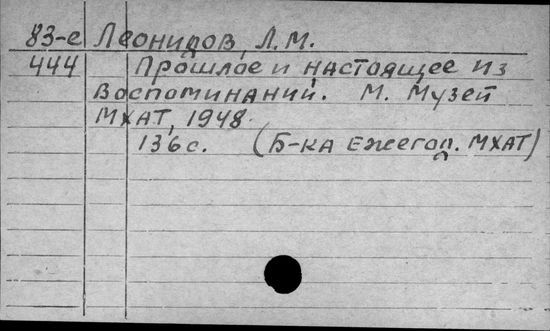 83-е Леонидов, Л.М.
444 Прошлое и настоящее из
воспоминаний. М. Музей
МХАТ, 1948.
136с. (Б-ка Ежегод. МХАТ)